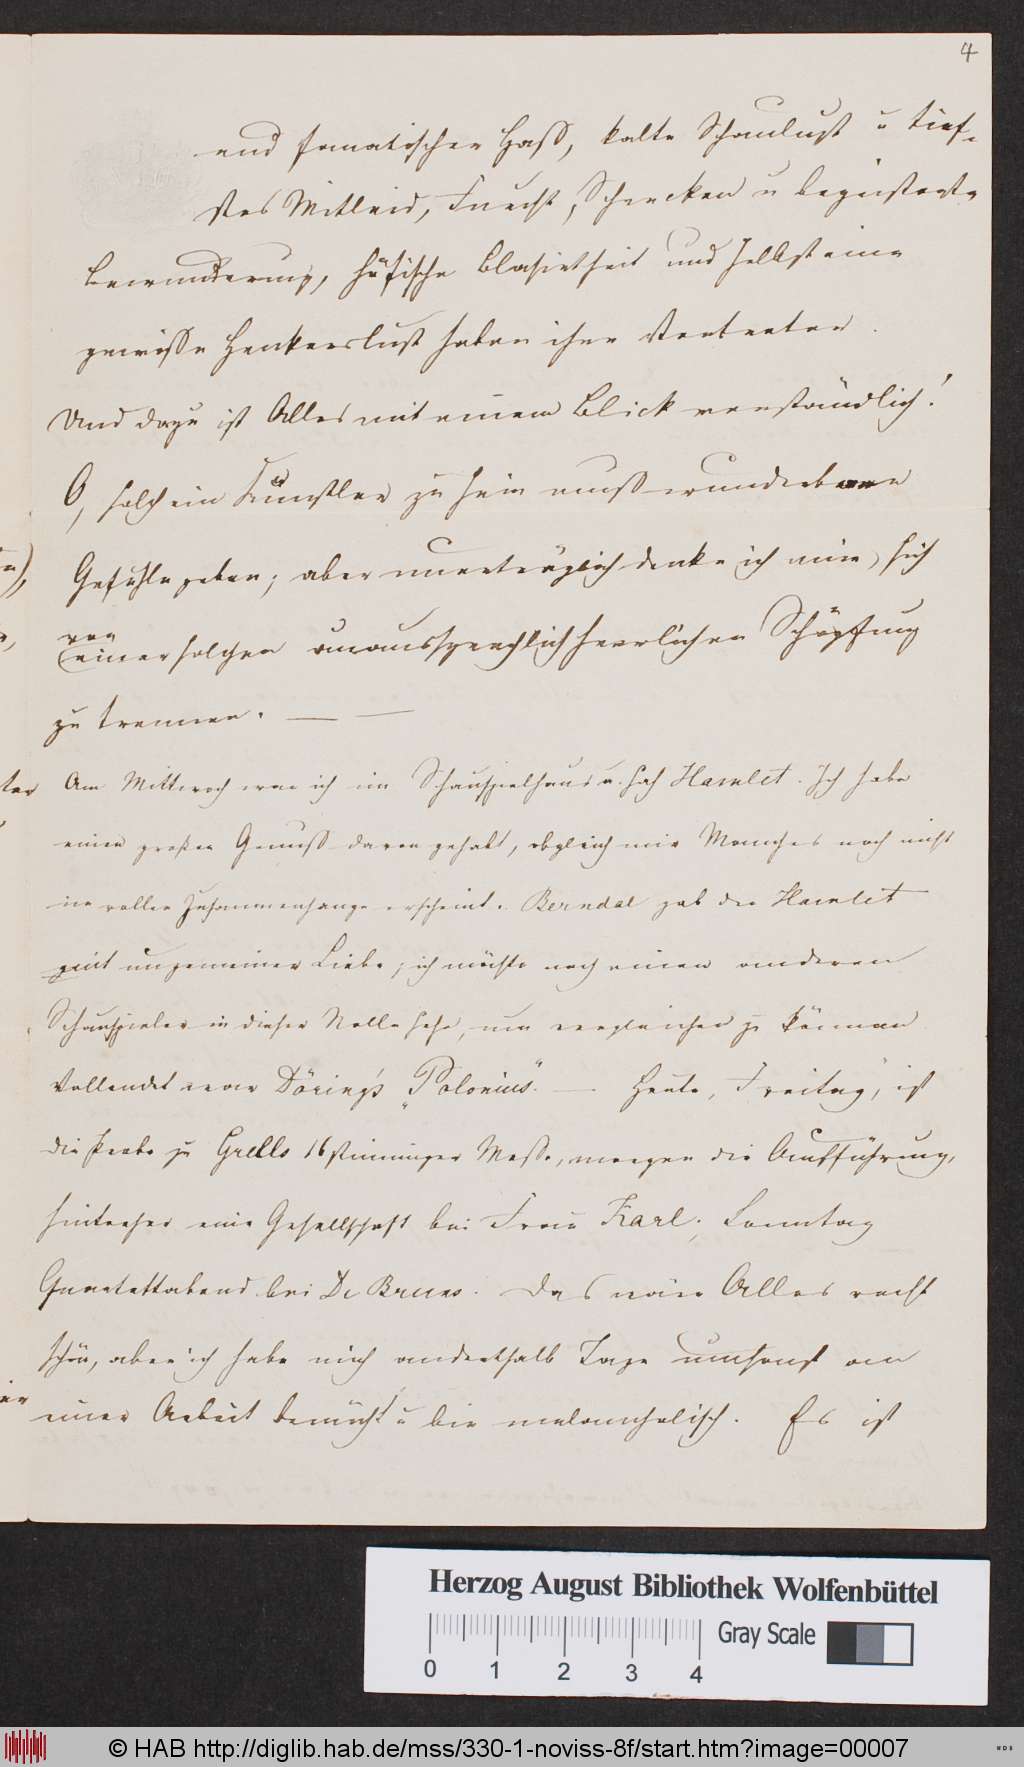 4
und fanatischer Haß, kalte Schaulust u tief-
stes Mitleid, Furcht, Schrecken u begeisterte
Bewunderung, höfische Blasirtheit und selbst eine
gewisse Henkerslust haben ihre Vertreter.
Und dazu ist Alles mit einem Blick verständlich!
O, solch ein Künstler zu sein muß wunderbare
Gefühle geben; aber unerträglich denke ich mir, sich
von
einer solchen unaussprechlich herrlichen Schöpfung
zu trennen. — —
Am Mittwoch war ich im Schauspielhaus u. sah Hamlet. Ich habe
einen großen Genuß davon gehabt, obgleich mir Manches noch nicht
in vollem Zusammenhange erscheint. Berndal gab den Hamlet
mit ungemeiner Liebe; ich möchte noch einen anderen
Schauspieler in dieser Rolle sehn, um vergleichen zu können
Vollendet war Döring's „Polonius". — Heute, Freitag, ist
die Probe zu Grells 16stimmiger Messe, morgen die Aufführung,
hinterher eine Gesellschaft bei Frau Karl, Sonntag
Quartettabend bei Dr Bruns. Das wäre Alles recht
schön, aber ich habe mich anderthalb Tage umsonst an
einer Arbeit bemüht u bin melancholisch. Es ist
Herzog August Bibliothek Wolfenbüttel
Gray Scale
0 1 2 3 4
© HAB http://diglib.hab.de/mss/330-1-noviss-8f/start.htm?image=00007